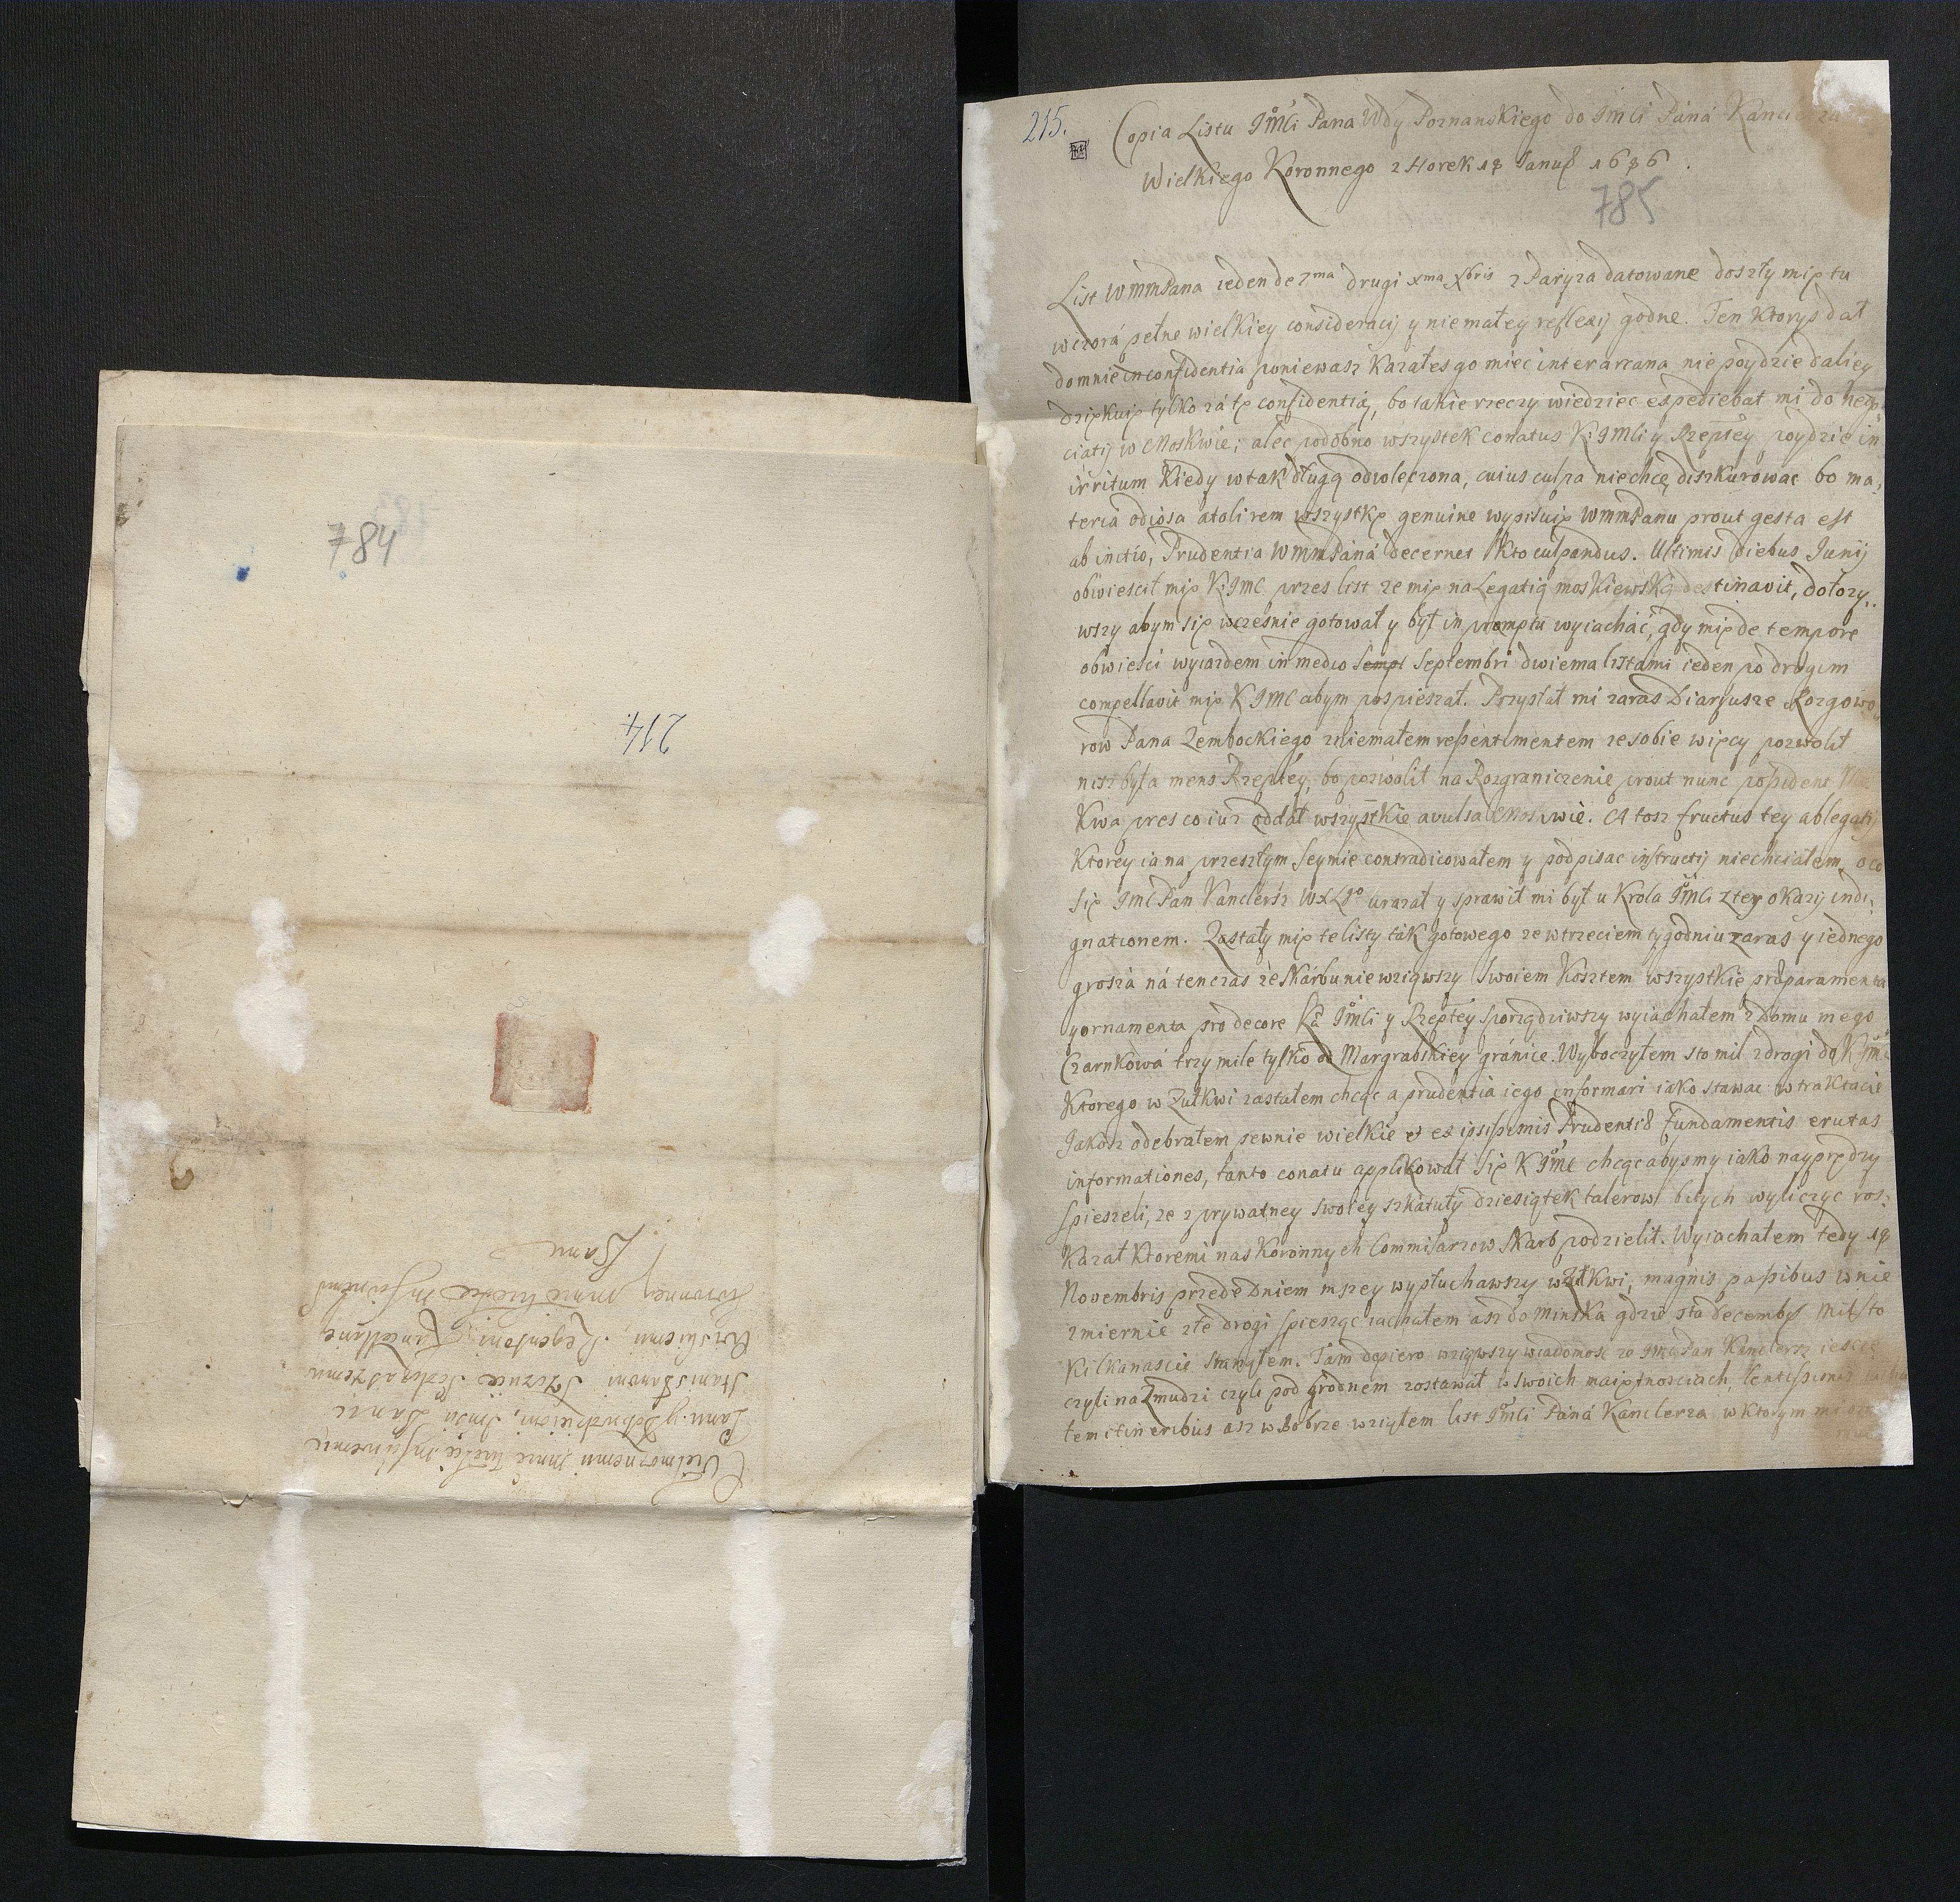 784
214.
Wielmożnemu mnie wielce Miłościwemu
Panu y Dobrodzieiowi, Jmści Panu
Stanisławowi Szczuce Podczaszemu
Wiskiemu, Regentowi Kancellariej
Koronney mnie wielce Miłościwemu
Panu
215.
Copia Listu JMści Pana Wdy Poznanskiego do JMści Páná Kanclerza
Wielkiego Koronnego z Horek 18 Januar 1686.
785
List WMMPana ieden de 7ma drugi xma Xbris z Paryza datowane doszły mię tu
wczorá pełne wielkiey consideracij y niemałey reflexij godne. Ten ktoryś dał
do mnie in confidentia poniewasz kazałes go miec inter arcana nie poydzie daliey
dziękuię tylko zá tę confidentią, bo takie rzeczy wiedziec expediebat mi do nego
ciatij w Moskwie; alec podobno wszystek conatus K: JMści y Rzeptey poydzie in
irritum kiedy w tak długą odwleczona, cuius culpa niechcę diszkurowac bo ma,
teria odiosa atoli rem wszystkę genuine wypisuię WMMPanu prout gesta est
ab initio, Prudentia WMMPáná decernet kto culpandus. Ultimis diebus Junij
obwiescił mię K: JMC przes list ze mię na Legatią moskiewską destinavit, dołozy,,
wszy abym się wczesnie gotował y był in promptu wyiachać, gdy mię de tempore
obwiesci wyiazdem in medio Sempt Septembri dwiema listami ieden po drugim
compellavit mię K JMC abym pospieszał. Przysłał mi zaras Diaryusze Rozgowo,
row Pana Zembockiego z niemałem resentimentem ze sobie więcy pozwolił
nisz była mens Rzeptey, bo pozwolił na Rozgraniczenie prout nunc possident Mo
kwa przes co iusz oddał wszystkie avulsa Moskwie. A tosz fructus tey ablegatij
ktorey ia na przeszłym Seymie contradicowałem y podpisac instructij niechciałem, o co
się JMC Pan Kanclersz WXLgo urazał y sprawił mi był u Krola JMści z tey okazij indi,
gnationem. Zastały mię te listy ták gotowego ze w trzeciem tygodniu zaras y iednego
groszá ná tenczas ze Skárbu nie wziąwszy swoiem kosztem wszystkie præparamenta
y ornamenta pro decore Ka JMści y Rzeptey sporządziwszy wyiachałem z Domu mego
Czarnkowá trzy mile tylko od Margrabskiey gránice. Wyboczyłem sto mil z drogi do K JMci
ktorego w Zułkwi zastałem chcąc a prudentia iego informari iako stawac w traktacie
Jakosz odebrałem pewnie wielkie et ex ipsissimis Prudentiæ fundamentis erutas
informationes, tanto conatu applikował się K JMC chcąc abysmy iako nayprędzy
spieszeli, ze z prywatney swoiey szkatuły dziesiątek talerow bitych wyliczyc ros,
kazał ktoremi nas koronnych Commisarzow skarb podzielił. Wyiachałem tedy 18
Novembris przede Dniem mszey wysłuchawszy w Zułkwi, magnis passibus w nie
zmiernie złe drogi spiesząc iachałem asz do Minska gdzie 5ta Decembris mil sto
kilkanascie stanąłem. Tam dopiero wziąwszy wiadomosc ze JMC Pan Kanclersz iescze
czyli na Zmudzi czyli pod Grodnem zostawał w swoich maiętnosciach, lentissimis
tem itineribus asz w Bobrze wziąłem list JMści Páná Kanclerza w ktorym mi